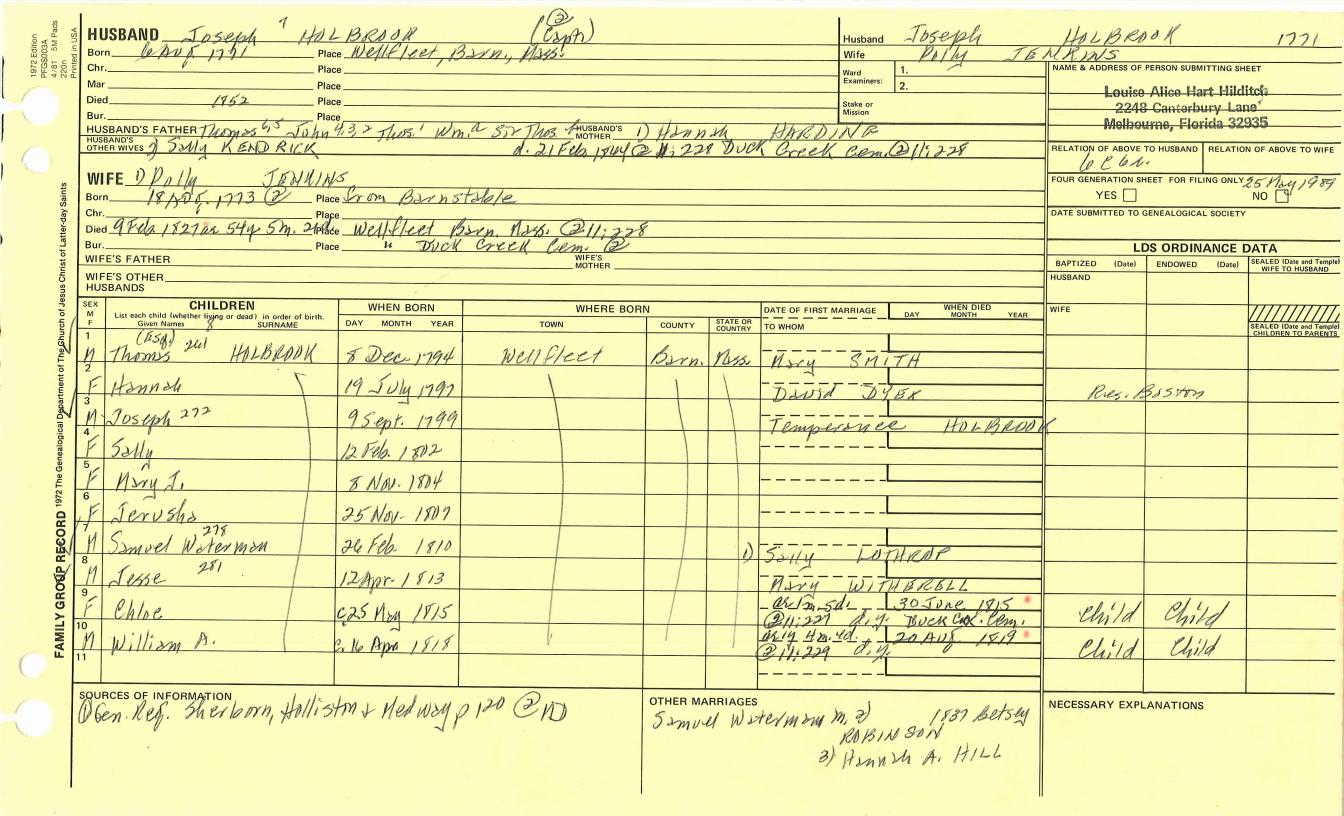 1972 Edition
PFGS003A
4/81 5M Pads
220n
Printed in USA
FAMILY GROUP RECORD 1972 The Genealogical Department of The Church of Jesus Christ of Latter-day Saints
HUSBAND Joseph 7 HOLBROOK (Capt) ②
Born 6 Aug. 1771 Place Wellfleet, Barn., Mass.
Chr. Place
Mar Place
Died 1852 Place
Bur. Place
HUSBAND'S FATHER Thomas 6,5 John 4,3,2 Thos.1 Wm.a Sir Thos. HUSBAND'S MOTHER 1) Hannah HARDING
HUSBAND'S OTHER WIVES 2) Sally KENDRICK d. 21 Feb. 1864 @ 11:228 Duck Creek Cem. @ 11:228
WIFE 1) Polly JENKINS
Born 1773 ② Place from Barnstable
Chr. Place
Died 9 Feb 1827 ae 54y 5m. Place Wellfleet Barn. Mass. ② 11:228
Bur. Place " Duck Creek Cem. ②
WIFE'S FATHER WIFE'S MOTHER
WIFE'S OTHER HUSBANDS
Husband Joseph HOLBROOK 1771
Wife Polly JENKINS
Ward Examiners: 1. 2.
Stake or Mission
NAME & ADDRESS OF PERSON SUBMITTING SHEET
Louise Alice Hart Hilditch
2248 Canterbury Lane
Melbourne, Florida 32935
RELATION OF ABOVE TO HUSBAND RELATION OF ABOVE TO WIFE
FOUR GENERATION SHEET FOR FILING ONLY 25 May 1989
YES NO
DATE SUBMITTED TO GENEALOGICAL SOCIETY
LDS ORDINANCE DATA
BAPTIZED (Date) ENDOWED (Date) SEALED (Date and Temple) WIFE TO HUSBAND
HUSBAND
WIFE
SEALED (Date and Temple) CHILDREN TO PARENTS
SEX M F CHILDREN WHEN BORN WHERE BORN DATE OF FIRST MARRIAGE WHEN DIED
List each child (whether living or dead) in order of birth. DAY MONTH YEAR TOWN COUNTY STATE OR COUNTRY TO WHOM DAY MONTH YEAR
Given Names 8 SURNAME
1 M Thomas (Esq.) 261 HOLBROOK 8 Dec. 1794 Wellfleet Barn. Mass. Mary SMITH
2 F Hannah 19 July 1797 David DYER Res. Boston
3 M Joseph 272 9 Sept. 1799 Temperance HOLBROOK
4 F Sally 12 Feb. 1802
5 F Mary J. 8 Nov. 1804
6 F Jerusha 25 Nov. 1807
7 M Samuel Waterman 278 26 Feb. 1810 1) Sally LOTHROP
8 M Jesse 281 12 Apr. 1813 Mary WITHERELL
9 F Chloe c. 25 May 1815 ae 1m. 5d. 30 June 1815 Child Child
② 11:227 d.y. Duck Crk. Cem.
10 M William A. c. 16 Apr 1818 ae 1y 4m. 4d. 20 Aug 1819 Child Child
② 11:229 d.y.
11
SOURCES OF INFORMATION
① Gen. Reg. Sherborn, Holliston & Medway p 120 ②
OTHER MARRIAGES
Samuel Waterman m. 2) 1837 Betsey
ROBINSON
3) Hannah A. HILL
NECESSARY EXPLANATIONS